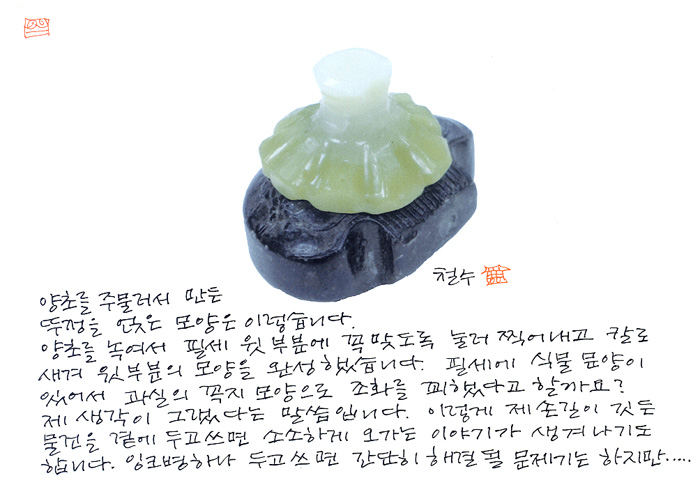 철수
양초를 주물러서 만든
뚜껑을 얹은 모양은 이렇습니다.
양초를 녹여서 필세 윗 부분에 꼭 맞도록 눌러 찍어내고 칼로
새겨 윗부분의 모양을 완성했습니다. 필세에 식물 문양이
있어서 과실의 꼭지 모양으로 조화를 꾀했다고 할까요?
제 생각이 그랬다는 말씀입니다. 이렇게 제 손길이 깃든
물건을 곁에 두고 쓰면 소소하게 오가는 이야기가 생겨나기도
합니다. 잉크병 하나 두고 쓰면 간단히 해결될 문제기는 하지만.....